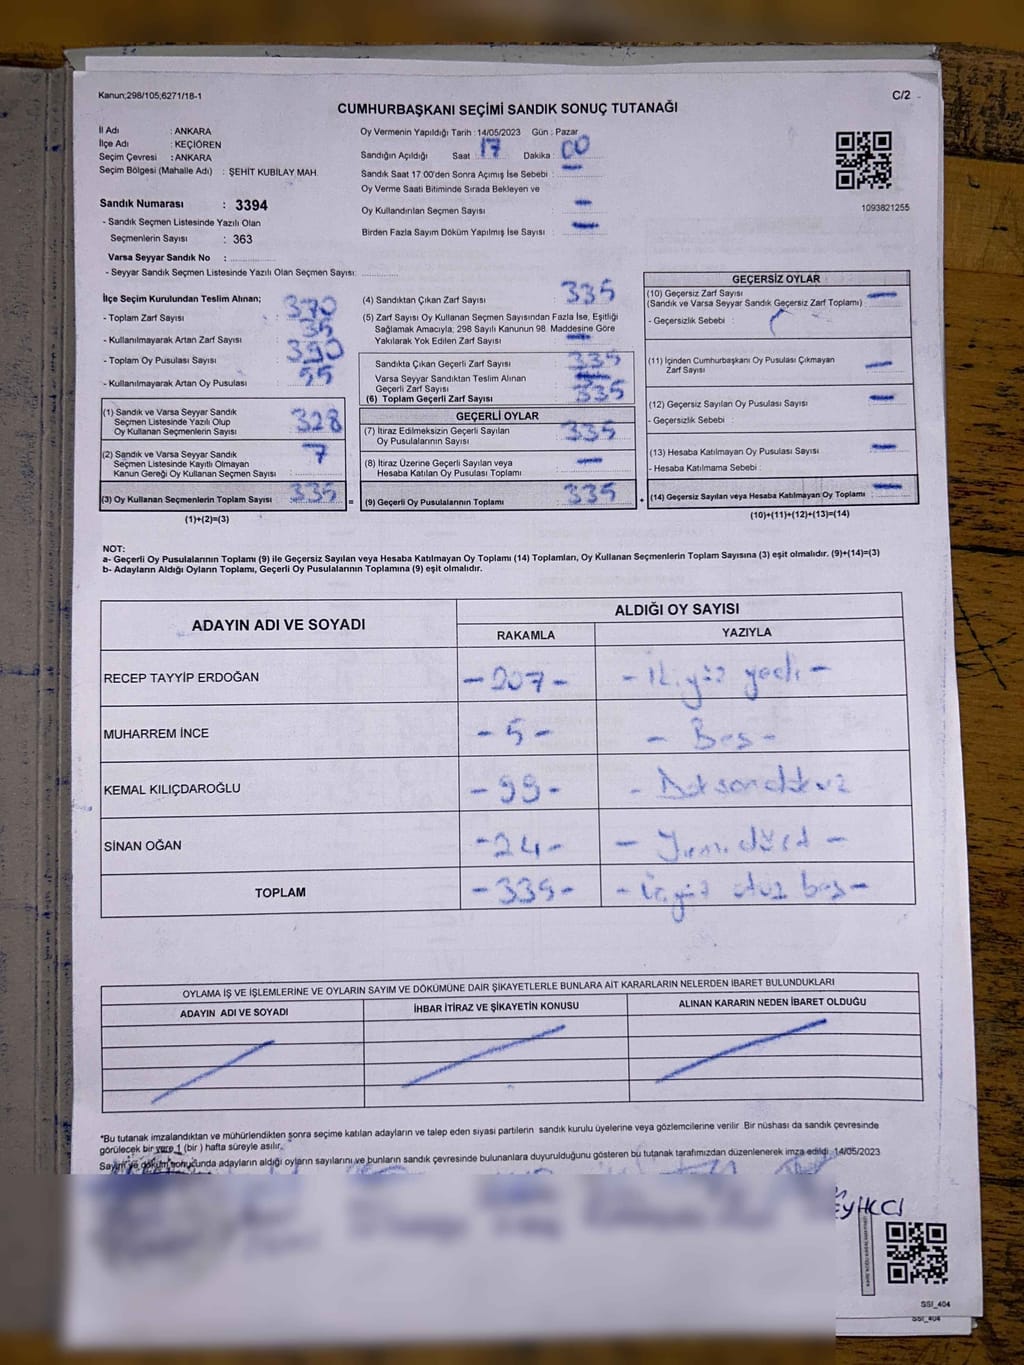 Kanun;298/105;6271/18-1
C/2
CUMHURBAŞKANI SEÇİMİ SANDIK SONUÇ TUTANAĞI
İl Adı : ANKARA
İlçe Adı : KEÇİÖREN
Seçim Çevresi : ANKARA
Seçim Bölgesi (Mahalle Adı) : ŞEHİT KUBİLAY MAH.
Sandık Numarası : 3394
- Sandık Seçmen Listesinde Yazılı Olan
Seçmenlerin Sayısı : 363
Varsa Seyyar Sandık No :
- Seyyar Sandık Seçmen Listesinde Yazılı Olan Seçmen Sayısı:
Oy Vermenin Yapıldığı Tarih : 14/05/2023 Gün : Pazar
Sandığın Açıldığı Saat 17 Dakika : 00
Sandık Saat 17.00'den Sonra Açımış İse Sebebi : —
Oy Verme Saati Bitiminde Sırada Bekleyen ve
Oy Kullandırılan Seçmen Sayısı —
Birden Fazla Sayım Döküm Yapılmış İse Sayısı : —
1093821255
İlçe Seçim Kurulundan Teslim Alınan;
- Toplam Zarf Sayısı : 370
- Kullanılmayarak Artan Zarf Sayısı : 35
- Toplam Oy Pusulası Sayısı : 390
- Kullanılmayarak Artan Oy Pusulası : 55
(1) Sandık ve Varsa Seyyar Sandık
Seçmen Listesinde Yazılı Olup
Oy Kullanan Seçmenlerin Sayısı : 328
(2) Sandık ve Varsa Seyyar Sandık
Seçmen Listesinde Kayıtlı Olmayan
Kanun Gereği Oy Kullanan Seçmen Sayısı : 7
(3) Oy Kullanan Seçmenlerin Toplam Sayısı : 335 =
(1)+(2)=(3)
(4) Sandıktan Çıkan Zarf Sayısı : 335
(5) Zarf Sayısı Oy Kullanan Seçmen Sayısından Fazla İse, Eşitliği
Sağlamak Amacıyla; 298 Sayılı Kanunun 98. Maddesine Göre
Yakılarak Yok Edilen Zarf Sayısı : —
Sandıkta Çıkan Geçerli Zarf Sayısı : 335
Varsa Seyyar Sandıktan Teslim Alınan
Geçerli Zarf Sayısı : —
(6) Toplam Geçerli Zarf Sayısı : 335
GEÇERLİ OYLAR
(7) İtiraz Edilmeksizin Geçerli Sayılan
Oy Pusulalarının Sayısı : 335
(8) İtiraz Üzerine Geçerli Sayılan veya
Hesaba Katılan Oy Pusulası Toplamı : —
(9) Geçerli Oy Pusulalarının Toplamı : 335 +
GEÇERSİZ OYLAR
(10) Geçersiz Zarf Sayısı : —
(Sandık ve Varsa Seyyar Sandık Geçersiz Zarf Toplamı)
- Geçersizlik Sebebi :
(11) İçinden Cumhurbaşkanı Oy Pusulası Çıkmayan
Zarf Sayısı : —
(12) Geçersiz Sayılan Oy Pusulası Sayısı : —
- Geçersizlik Sebebi :
(13) Hesaba Katılmayan Oy Pusulası Sayısı : —
- Hesaba Katılmama Sebebi :
(14) Geçersiz Sayılan veya Hesaba Katılmayan Oy Toplamı : —
(10)+(11)+(12)+(13)=(14)
NOT:
a- Geçerli Oy Pusulalarının Toplamı (9) ile Geçersiz Sayılan veya Hesaba Katılmayan Oy Toplamı (14) Toplamları, Oy Kullanan Seçmenlerin Toplam Sayısına (3) eşit olmalıdır. (9)+(14)=(3)
b- Adayların Aldığı Oyların Toplamı, Geçerli Oy Pusulalarının Toplamına (9) eşit olmalıdır.
ADAYIN ADI VE SOYADI ALDIĞI OY SAYISI
RAKAMLA YAZIYLA
RECEP TAYYİP ERDOĞAN - 207 - - İkiyüz yedi -
MUHARREM İNCE - 5 - - Beş -
KEMAL KILIÇDAROĞLU - 99 - - Doksandokuz
SİNAN OĞAN - 24 - - Yirmi dört -
TOPLAM - 335 - - Üçyüz otuz beş -
OYLAMA İŞ VE İŞLEMLERİNE VE OYLARIN SAYIM VE DÖKÜMÜNE DAİR ŞİKAYETLERLE BUNLARA AİT KARARLARIN NELERDEN İBARET BULUNDUKLARI
ADAYIN ADI VE SOYADI İHBAR İTİRAZ VE ŞİKAYETİN KONUSU ALINAN KARARIN NEDEN İBARET OLDUĞU
*Bu tutanak imzalandıktan ve mühürlendikten sonra seçime katılan adayların ve talep eden siyasi partilerin sandık kurulu üyelerine veya gözlemcilerine verilir. Bir nüshası da sandık çevresinde
görülecek bir yere 1 (bir ) hafta süreyle asılır.
Sayım ve döküm sonucunda adayların aldığı oyların sayılarını ve bunların sandık çevresinde bulunanlara duyurulduğunu gösteren bu tutanak tarafımızdan düzenlenerek imza edildi. 14/05/2023
SSİ_404
SSİ_404